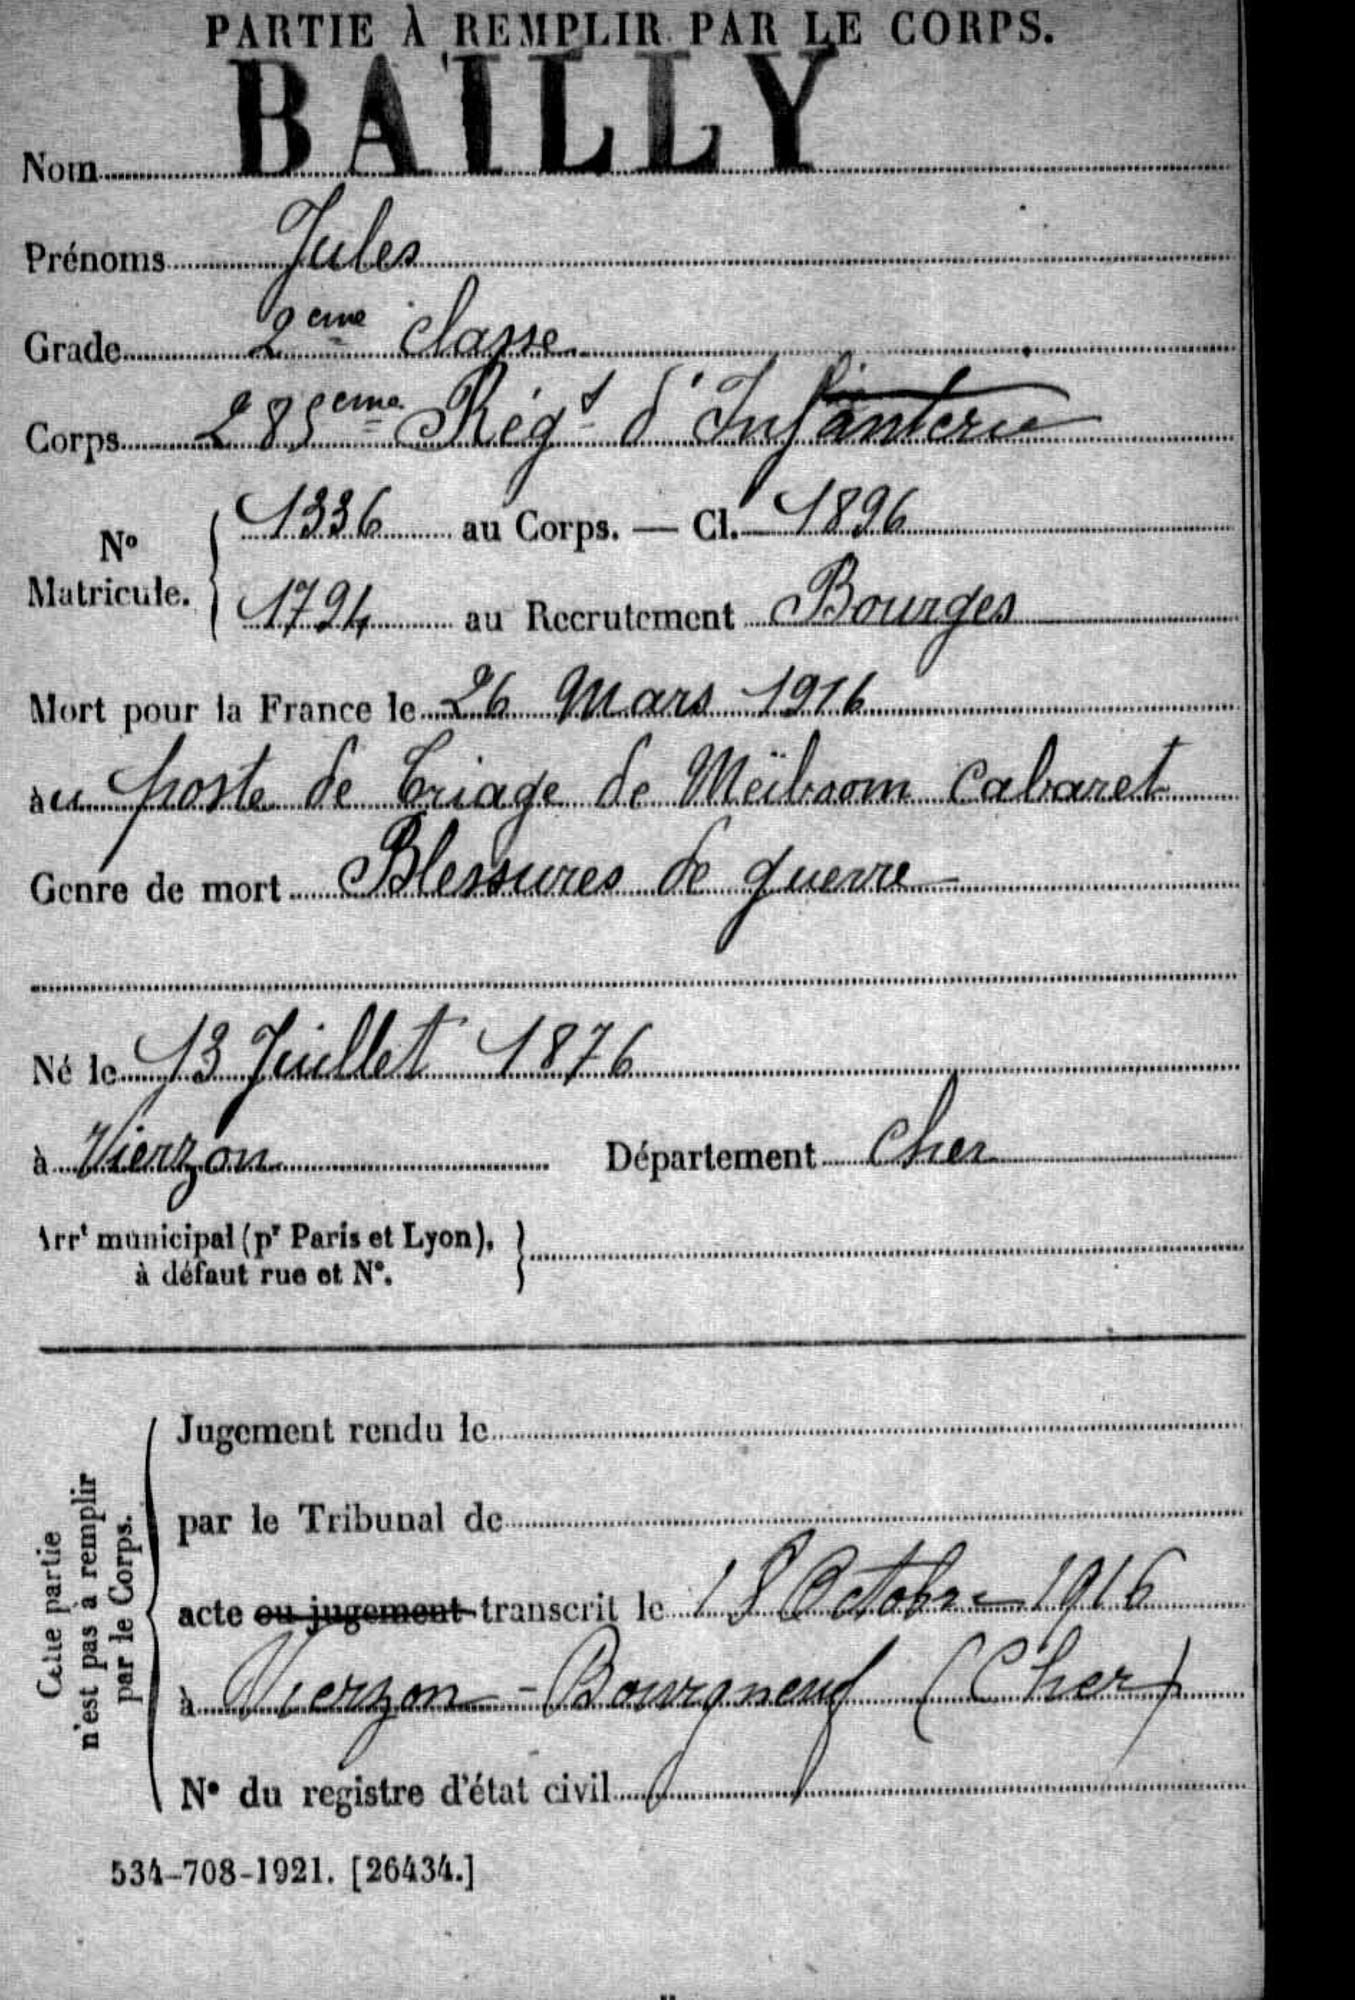 PARTIE À REMPLIR PAR LE CORPS.
Nom BAILLY
Prénoms Jules
Grade 2eme classe
Corps 285eme Régt d'Infanterie
No Matricule. 1336 au Corps. — Cl. 1896
1794 au Recrutement Bourges
Mort pour la France le 26 Mars 1916
au poste de triage de Meïbsom Cabaret
Genre de mort Blessures de guerre
Né le 13 Juillet 1876
à Vierzon Département Cher
Arrt municipal (pr Paris et Lyon), à défaut rue et N°.
Cette partie n'est pas à remplir par le Corps.
Jugement rendu le
par le Tribunal de
acte ou jugement transcrit le 18 Octobre 1916
à Vierzon - Bourgneuf (Cher)
N° du registre d'état civil
534-708-1921. [26434.]